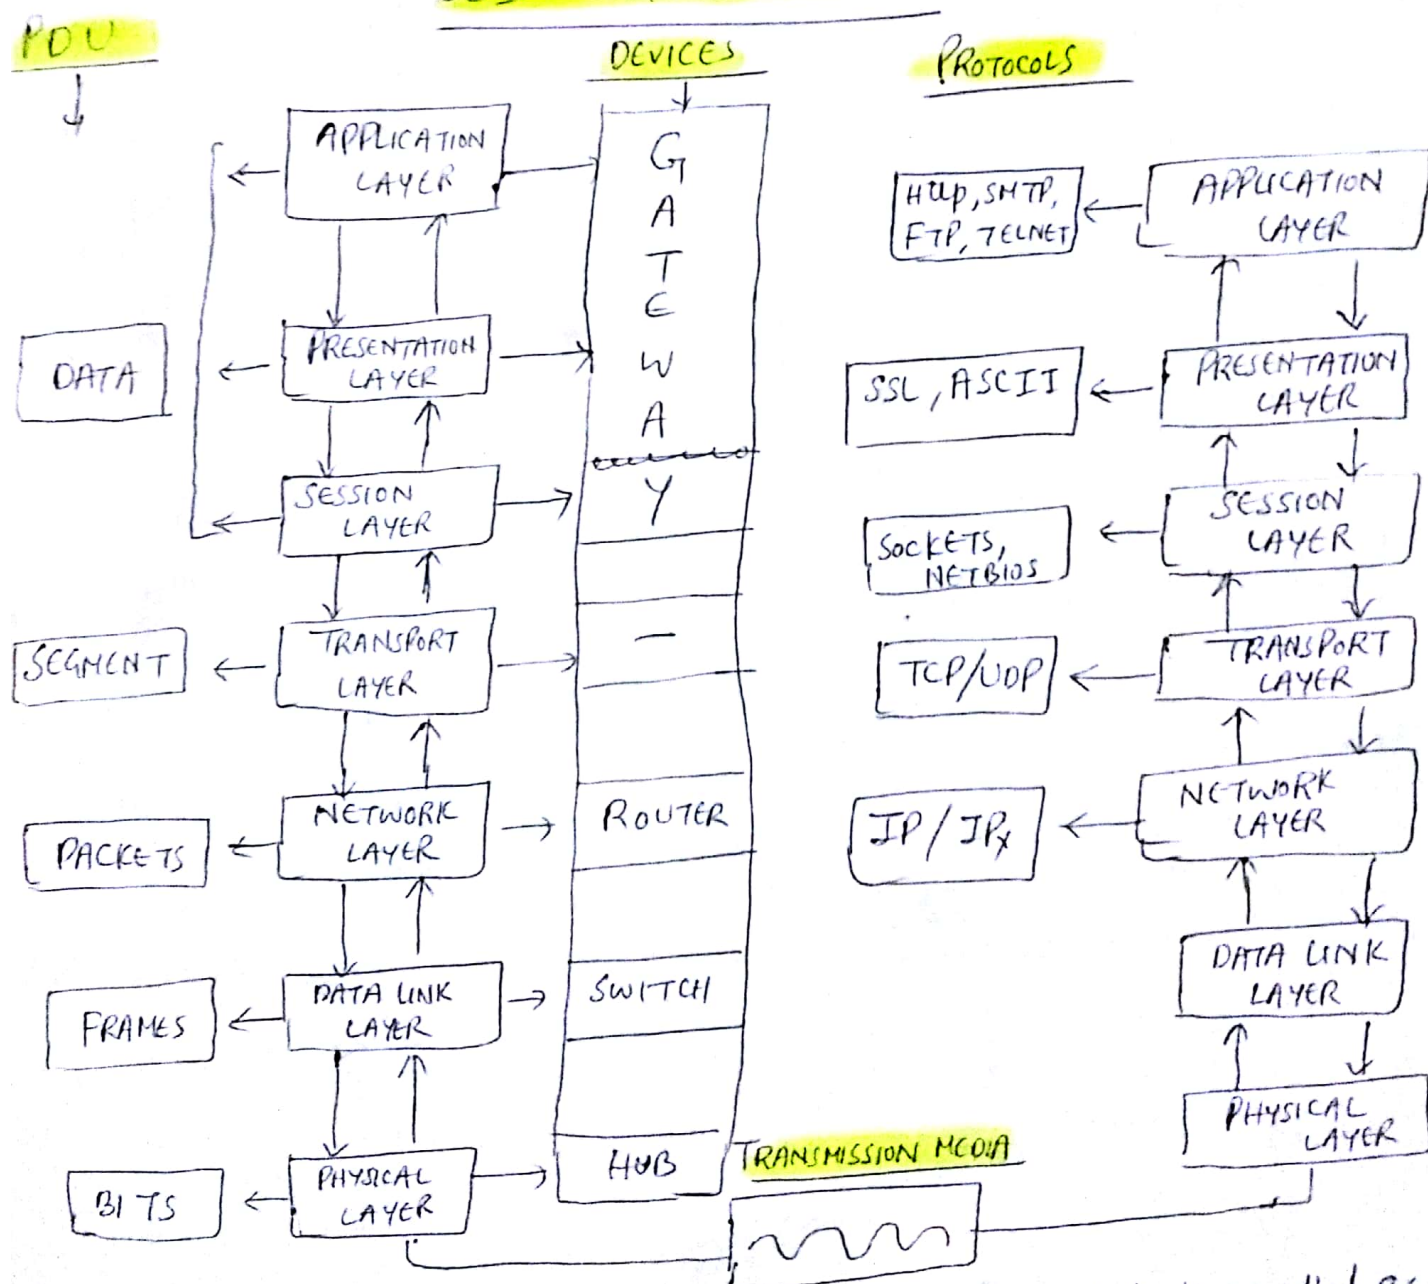 PDU
DEVICES
PROTOCOLS
APPLICATION
LAYER
PRESENTATION
LAYER
SESSION
LAYER
TRANSPORT
LAYER
NETWORK
LAYER
DATA LINK
LAYER
PHYSICAL
LAYER
DATA
SEGMENT
PACKETS
FRAMES
BITS
G
A
T
E
W
A
Y
—
ROUTER
SWITCH
HUB
TRANSMISSION MEDIA
Http, SMTP,
FTP, TELNET
SSL, ASCII
SOCKETS,
NETBIOS
TCP/UDP
IP/IPx
APPLICATION
LAYER
PRESENTATION
LAYER
SESSION
LAYER
TRANSPORT
LAYER
NETWORK
LAYER
DATA LINK
LAYER
PHYSICAL
LAYER